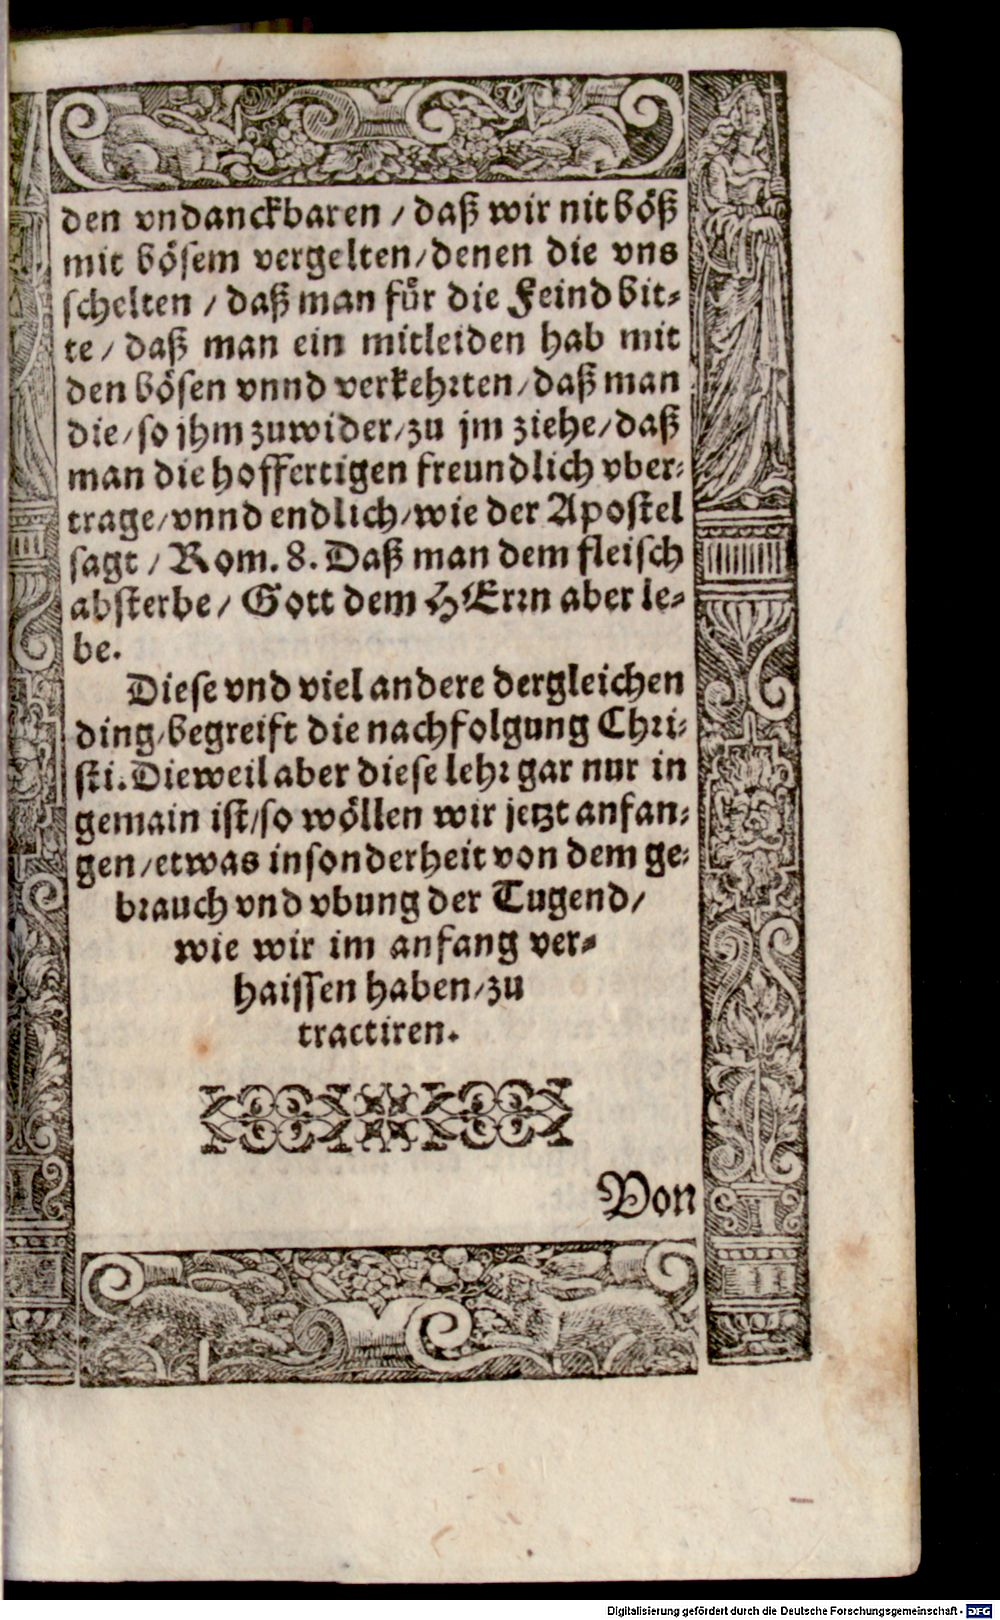 den vndanckbaren / daß wir nit böß
mit bösem vergelten/denen die vns
schelten / daß man für die Feind bit-
te/ daß man ein mitleiden hab mit
den bösen vnnd verkehrten/daß man
die/so jhm zuwider/zu jm ziehe/daß
man die hoffertigen freundlich vber-
trage/vnnd endlich/wie der Apostel
sagt / Rom. 8. Daß man dem fleisch
absterbe/ Gott dem HErrn aber le-
be.
Diese vnd viel andere dergleichen
ding/begreift die nachfolgung Chri-
sti. Dieweil aber diese lehr gar nur in
gemain ist/so wöllen wir jetzt anfan-
gen/etwas insonderheit von dem ge-
brauch vnd vbung der Tugend/
wie wir im anfang ver-
haissen haben/zu
tractiren.
Von
Digitalisierung gefördert durch die Deutsche Forschungsgemeinschaft - DFG